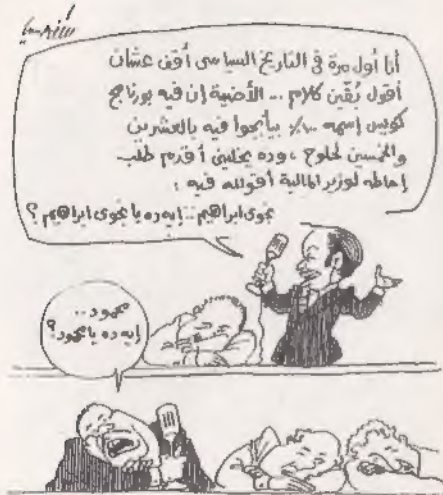 أنا أول مرة في التاريخ السياسى أقف عشان
أقول بُقّين كلام ... الأضية إن فيه برنامج
كويس إسمه ١٠٠٪ بيأبجوا فيه بالعشرين
والخمسين لحلوح ، وده يخلينى أقدم طلب
إحاطه لوزير المالية أقولله فيه :
نجوى ابراهيم .. إيه ده يا نجوى ابراهيم ؟
محمود ..
إيه ده يا محمود ؟